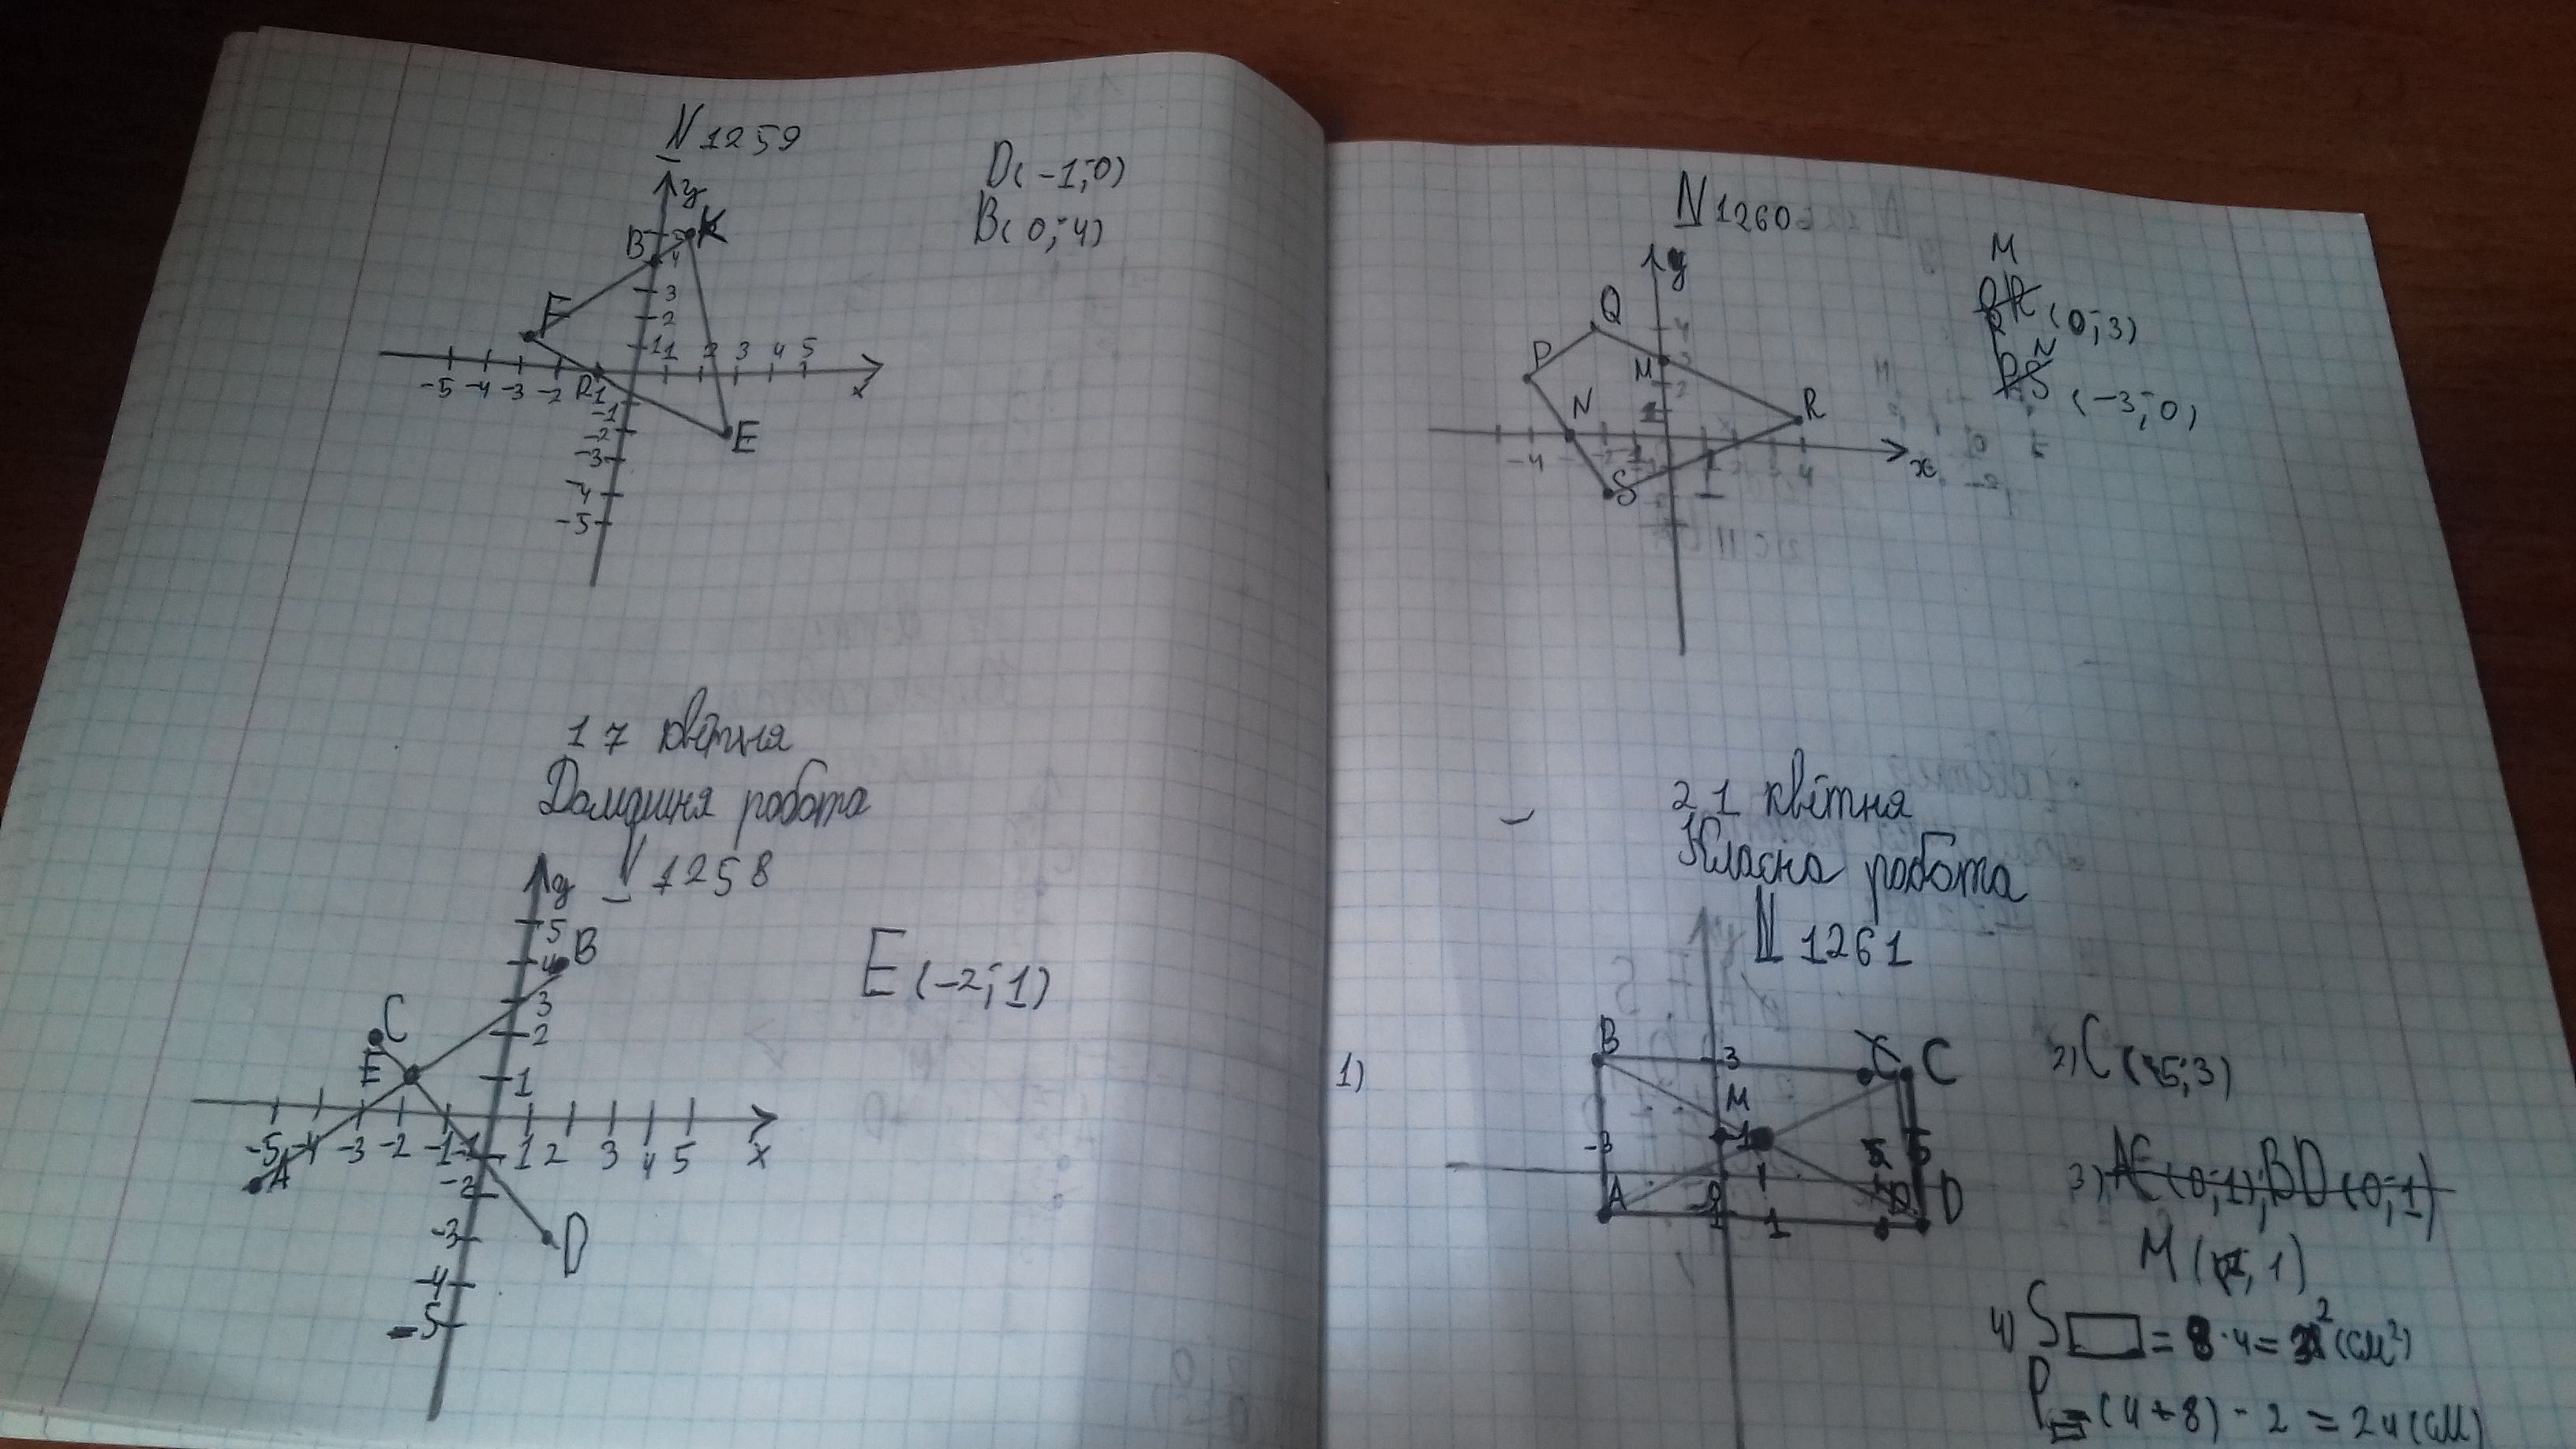 N 1259
D(-1;0)
B(0;4)
y
B 5 K
4
F 3
2
1 1 2 3 4 5
-5 -4 -3 -2 D -1 x
-1
-2 E
-3
-4
-5
17 квітня
Домашня робота
N 1258
y
5 B
4
E(-2;1)
C 3
2
E 1
-5 -4 -3 -2 -1 -1 1 2 3 4 5 x
A -2
-3 D
-4
-5
N 1260
y
M
(0;3)
N
(-3;0)
Q 4
P M 3
2
N 1 R
-4 4 x
S
21 квітня
Класна робота
N 1261
1)
B 3 C C
2) C(5;3)
M
-3 1 5
A 1 D
-1 1
3) AC(0;1);BD(0;1)
M( ;1)
4) S = 8·4= (см²)
P = (4+8)·2=24(см)